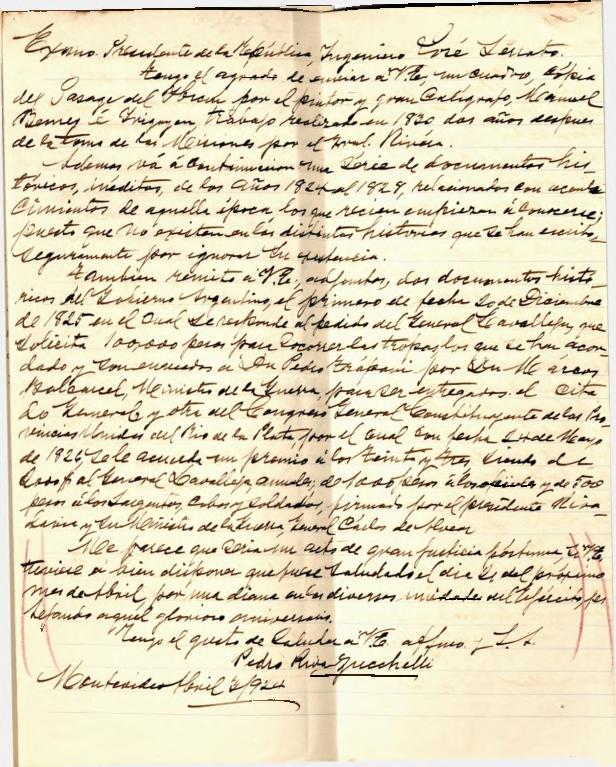 Exmo. Presidente de la República, Ingeniero José Serrato.
Tengo el agrado de enviar a V.E. un cuadro, cópia
del Pasage del por el pintor y gran Calígrafo, Manuel
Besnes é Irigoyen trabajo realizado en 1830 dos años despues
de la toma de las Misiones por el Gral. Rivera.
Ademas vá á continuacion una série de documentos his-
tóricos, inéditos, de los años 1824 al 1828, relacionados con aconte-
cimientos de aquella época, los que recien empiezan á conocerse;
puesto que no existen en las distintas historias que se han escrito,
seguramente por ignorar su existencia.
Tambien remito a V.E., adjuntos, dos documentos histó-
ricos del Gobierno Argentino, el primero de fecha 20 de Diciembre
de 1825 en el cual se responde al pedido del General Lavalleja, que
solicita 100.000 pesos para socorrer las tropas, los que se han acor-
dado y son enviados a Dn Pedro Trápani por Dn Marcos
Balcarcel, Ministro de la Guerra, para ser entregados al cita-
do General, y otra del Congreso General Constituyente de las Pro-
vincias Unidas del Rio de la Plata por el cual con fecha 24 de Mayo
de 1826 se le acuerda un premio á los treinta y tres, siendo de
al General Lavalleja de 1000 pesos á los y de 500
pesos á los Sargentos, cabos y soldados, firmado por el presidente Riva-
davia y su Ministro de la Guerra, General Carlos de Alvear
Me parece que seria un acto de gran justicia póstuma, si V.E.
tuviese á bien disponer que fuese saludado el dia 21 del próximo
mes de Abril por una diana en las diversas unidades del Ejército, fes-
tejando aquel glorioso aniversario.
Tengo el gusto de saludar a V.E. affmo. y S.S.
Pedro Riva Zucchelli
Montevideo Abril /924